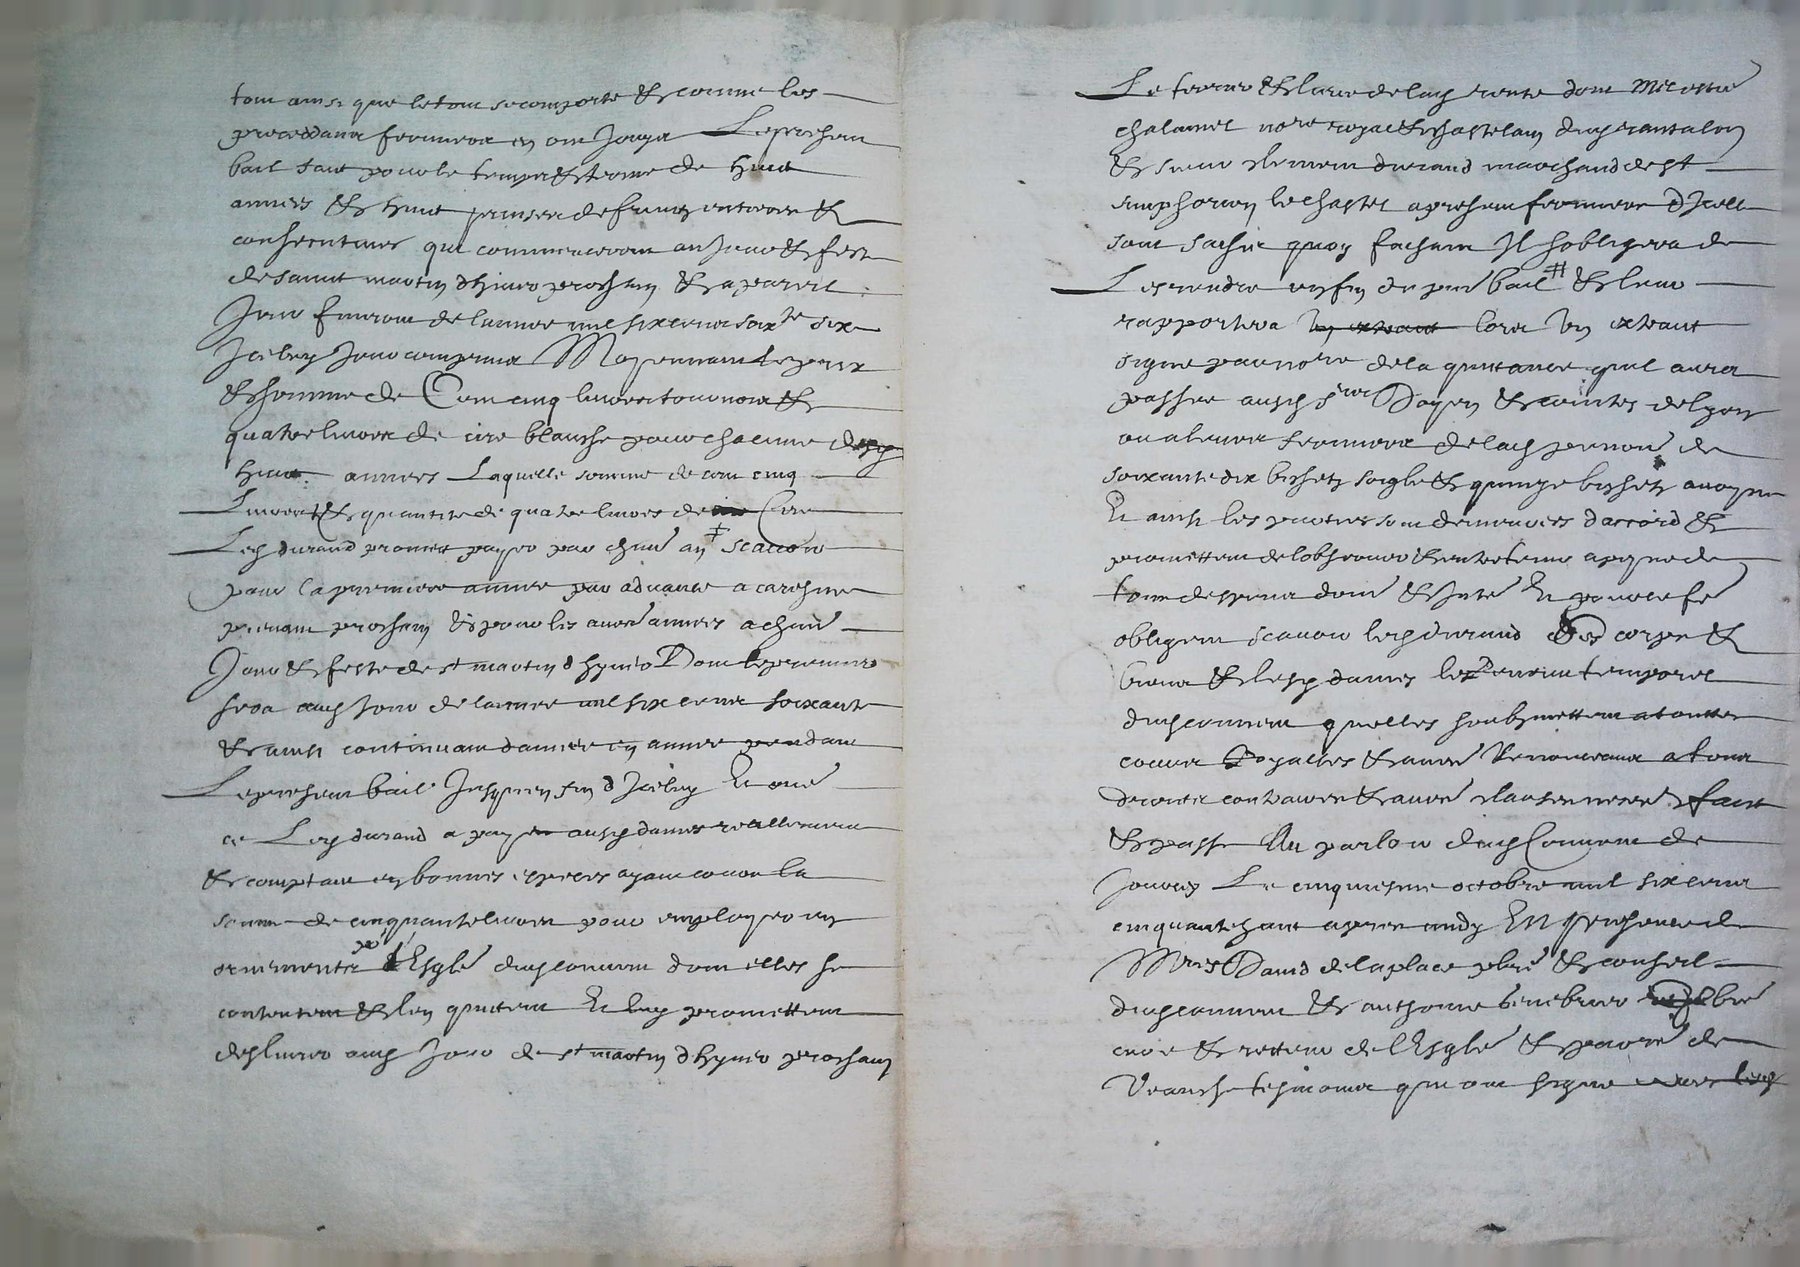 tout ainsi que le tout se comporte & comme les
precedans fermiers en ont jouyr Le present
bail faict pour le temps & terme de huict
annees & huict prinses de fruictz entieres &
consecutives qui commenceront au jour & feste
de sainct martin dhiver prochain & a pareil
Jour finiront de lannee mil six cens soix.te six
Iceluy jour comprins Moyennant le prix
& somme de Cent cinq livres tournois &
quatre livres de cire blanche pour chacune desd
huict annees Laquelle somme de cent cinq
Livres & quantite de quatre livres de Cire
Led durand promet payer par chun an ‡ scavoir
pour la premiere annee par advance a caresme
prenant prochain & pour les aues annees a chun
Jour & feste de st martin dhyver Dont le premier
sera aud jour de lannee mil six cens soixante
& ainsi continuant dannee en annee pendant
Le present bail Jusques en fin d Iceluy Et oue
ce Led durand a paye ausd dames reallement
& comptant en bonnes especes ayant cours la
somme de cinquante livres pour employer en
ornements po.r lEsglé dud convent dont elles se
contentent & len quittent Et luy promettent
deslivrer aud Jour de st martin dhyver prochain
Le terrier & lieve de lad rente dont Me
chalamel no.re royal & chastelain dud
& sieur clement durand marchand de st
simphorien le chastel a present fermiers dIcelle
sont saisis quoy faisant Il sobligera de
Les rendre en fin du pnt bail # & leur
rapportera un extraict lors un extraict
signe par no.re de la quittance quil aura
passee ausd s.rs Doyen & comtes de lyon
ou a leurs fermiers de lad pension de
soixante dix bichetz soigle & quinze bichetz avoyne
Et ainsi les parties sont demeurees daccord &
promettent de lobserver & entretenir a peyne de
tous despens dom & Inté Et pour ce fe
obligent scavoir led durand ses corps &
biens & lesd dames le revenu temporel
dud convent quelles soubzmettent a toutes
cours Royalles & aues Renonceans a tous
droictz contraires & aues clauses necess. faict
& passe Au parloir dud Convent de
Jourcey Le cinquiesme octobre mil six cens
cinquante huict apres midy En presence de
M.re David de laplace pbre & conseil
dud convent & anthoine
cure & recteur de lEsglé & parre de
Veauche tesmoins qui ont signe avec lesd